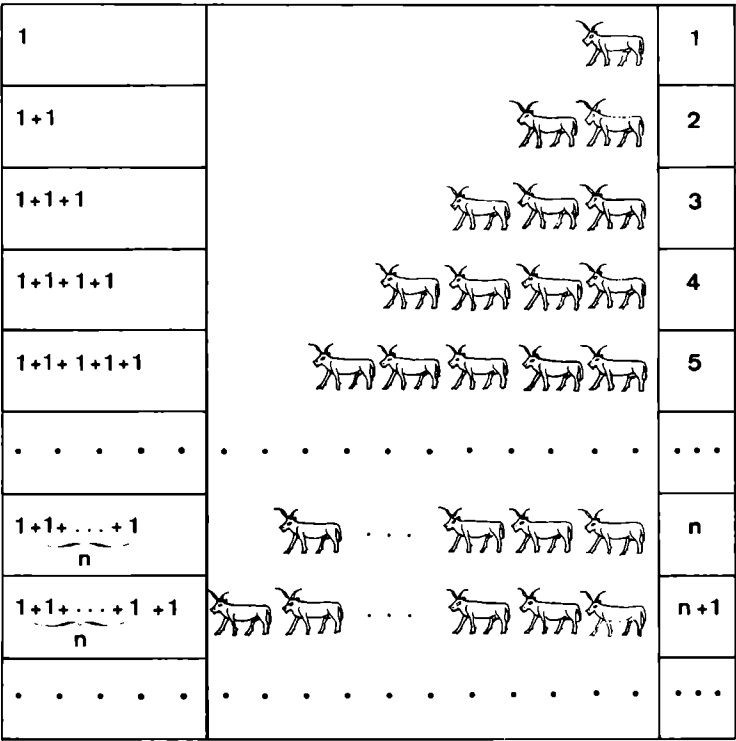 1 1
1+1 2
1+1+1 3
1+1+1+1 4
1+1+1+1+1 5
. . . . . . . . . . . . . . . . . . .
1+1+ ... +1 ... n
n
1+1+ ... +1 +1 ... n+1
n
. . . . . . . . . . . . . . . . . . .